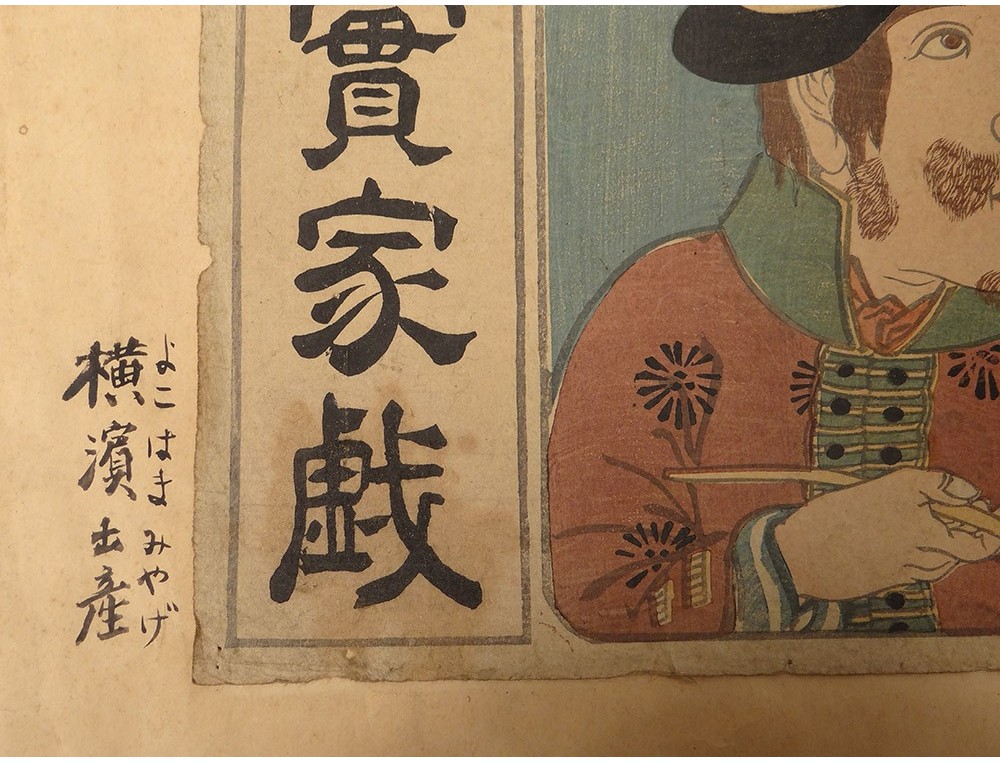 實家戯
よこはまみやげ
横濱土産